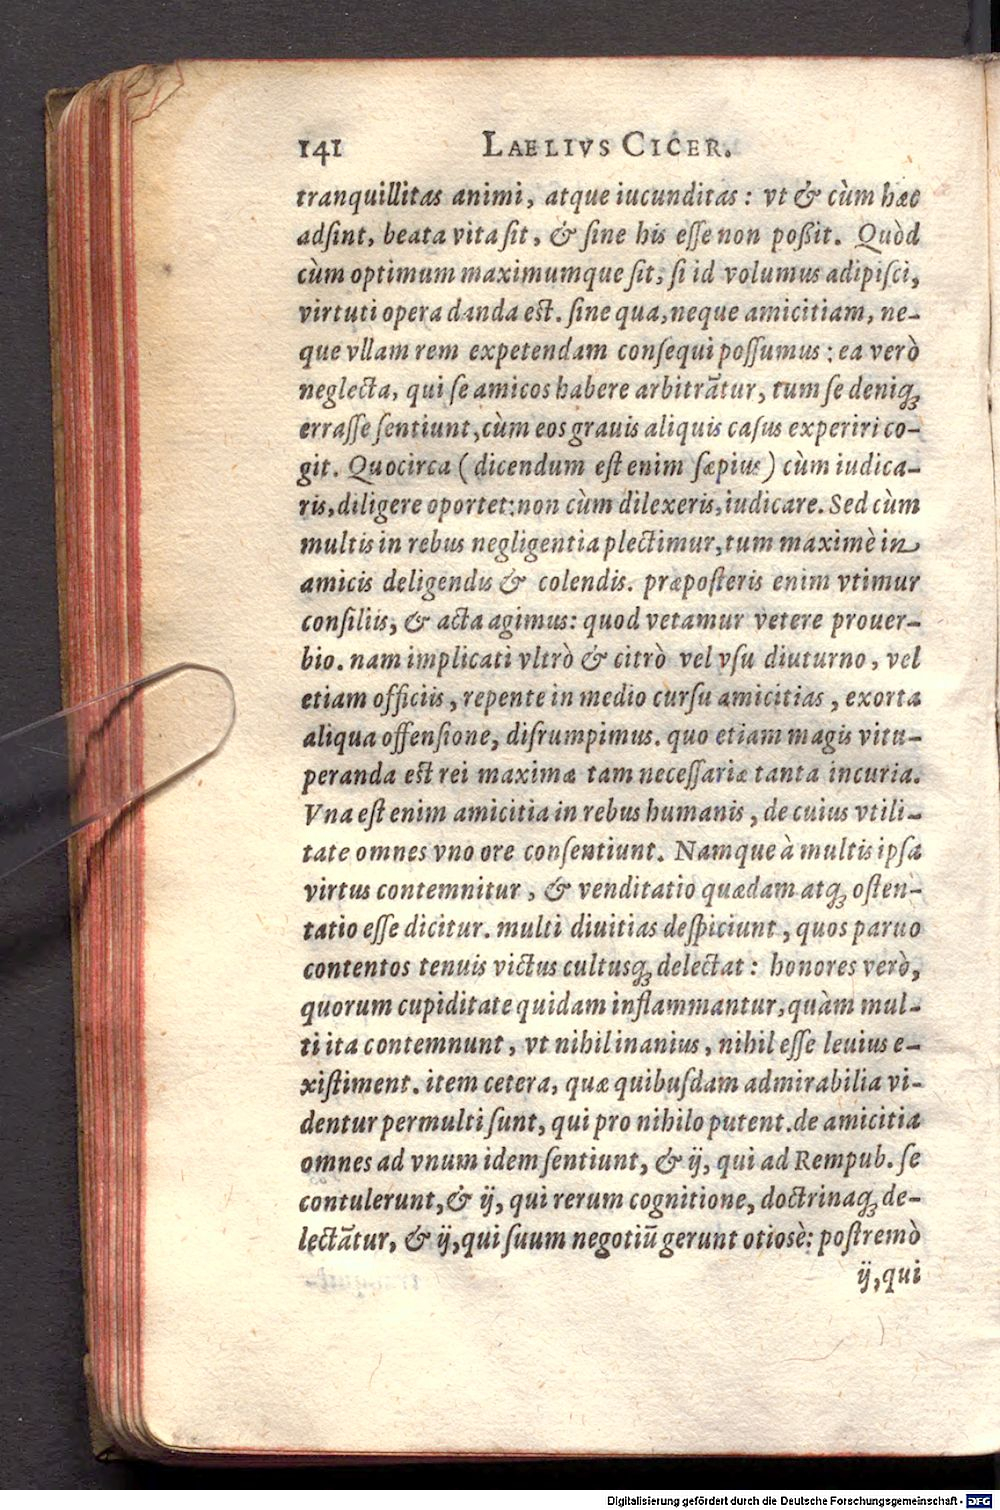 141 LAELIVS CICER.
tranquillitas animi, atque iucunditas: vt & cùm hæc
adſint, beata vita ſit, & ſine his eſſe non poßit. Quòd
cùm optimum maximumque ſit, ſi id volumus adipiſci,
virtuti opera danda eſt. ſine qua, neque amicitiam, ne-
que vllam rem expetendam conſequi poſſumus: ea verò
neglecta, qui ſe amicos habere arbitrātur, tum ſe deniqꝫ
erraſſe ſentiunt, cùm eos grauis aliquis caſus experiri co-
git. Quocirca (dicendum eſt enim ſæpius) cùm iudica-
ris, diligere oportet: non cùm dilexeris, iudicare. Sed cùm
multis in rebus negligentia plectimur, tum maximè in
amicis deligendis & colendis. præpoſteris enim vtimur
conſiliis, & acta agimus: quod vetamur vetere prouer-
bio. nam implicati vltrò & citrò vel vſu diuturno, vel
etiam officiis, repente in medio curſu amicitias, exorta
aliqua offenſione, diſrumpimus. quo etiam magis vitu-
peranda eſt rei maximæ tam neceſſariæ tanta incuria.
Vna eſt enim amicitia in rebus humanis, de cuius vtili-
tate omnes vno ore conſentiunt. Namque à multis ipſa
virtus contemnitur, & venditatio quædam atqꝫ oſten-
tatio eſſe dicitur. multi diuitias deſpiciunt, quos paruo
contentos tenuis victus cultusqꝫ delectat: honores verò,
quorum cupiditate quidam inflammantur, quàm mul-
ti ita contemnunt, vt nihil inanius, nihil eſſe leuius e-
xiſtiment. item cetera, quæ quibuſdam admirabilia vi-
dentur permulti ſunt, qui pro nihilo putent. de amicitia
omnes ad vnum idem ſentiunt, & ij, qui ad Rempub. ſe
contulerunt, & ij, qui rerum cognitione, doctrinaqꝫ de-
lectātur, & ij, qui ſuum negotiū gerunt otiosè: poſtremò
ij, qui
Digitalisierung gefördert durch die Deutsche Forschungsgemeinschaft - DFG